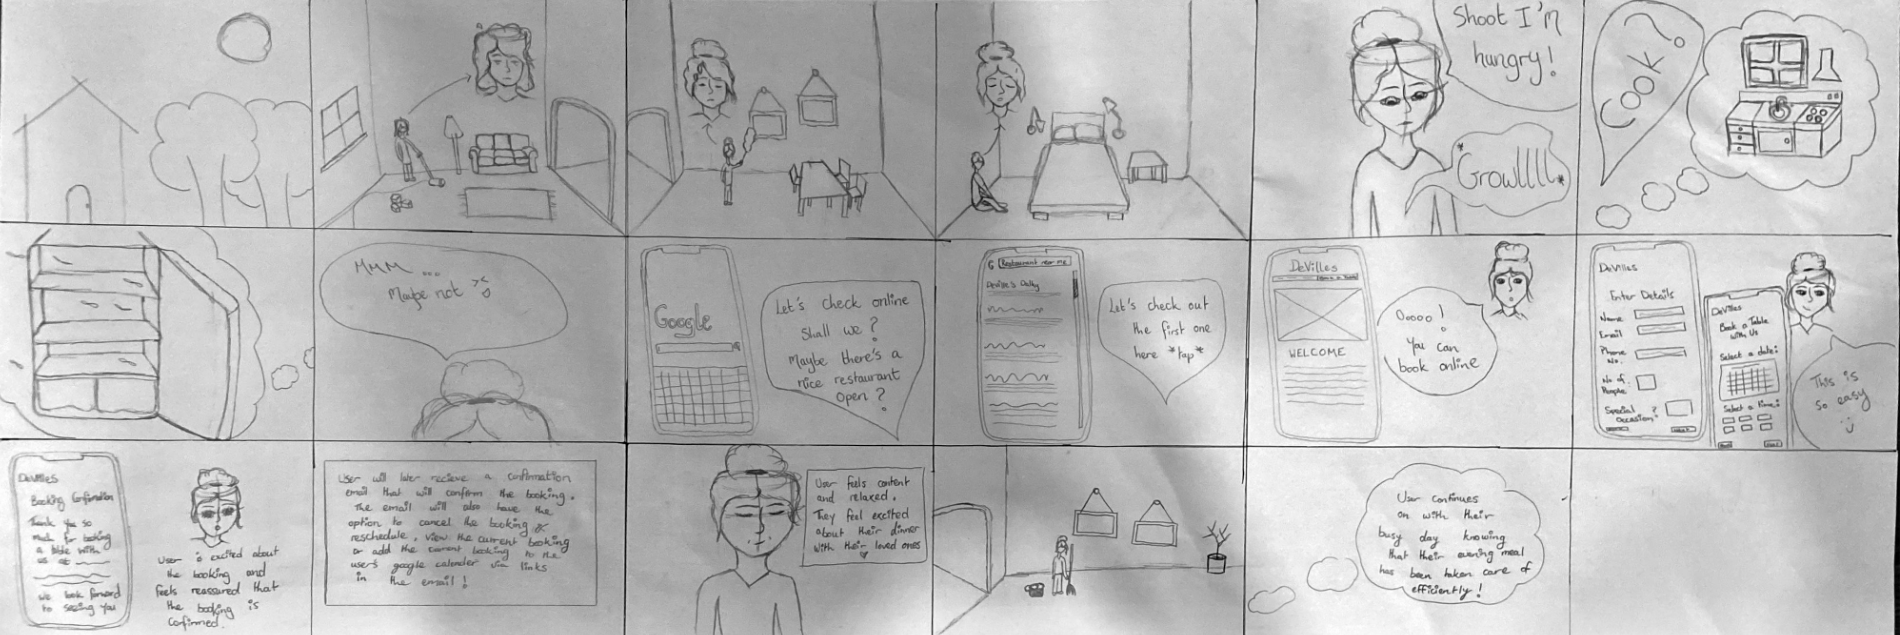 Shoot I'm
hungry!
*Growllll*
Cook?
MMM ...
Maybe not
Google
Let's check online
Shall we?
Maybe there's a
nice restaurant
open?
G Restaurant near me
Let's check out
the first one
here *tap*
DeVilles
WELCOME
Oooo!
You can
book online
DeVilles
Enter Details
Name
Email
Phone
No.
No of.
People
Special
Occasion?
DeVilles
Book a Table
with Us
Select a date:
Select a time:
This is
so easy
:)
DeVilles
Booking Confirmation
Thank you so
much for booking
a table with
us at
we look forward
to seeing you
User is excited about
the booking and
feels reassured that
the booking is
confirmed.
User will later recieve a confirmation
email that will confirm the booking.
The email will also have the
option to cancel the booking or
reschedule, view the current booking
or add the current booking to the
user's google calender via links
in the email!
User feels content
and relaxed.
They feel excited
about their dinner
with their loved ones
User continues
on with their
busy day knowing
that their evening meal
has been taken care of
efficiently!